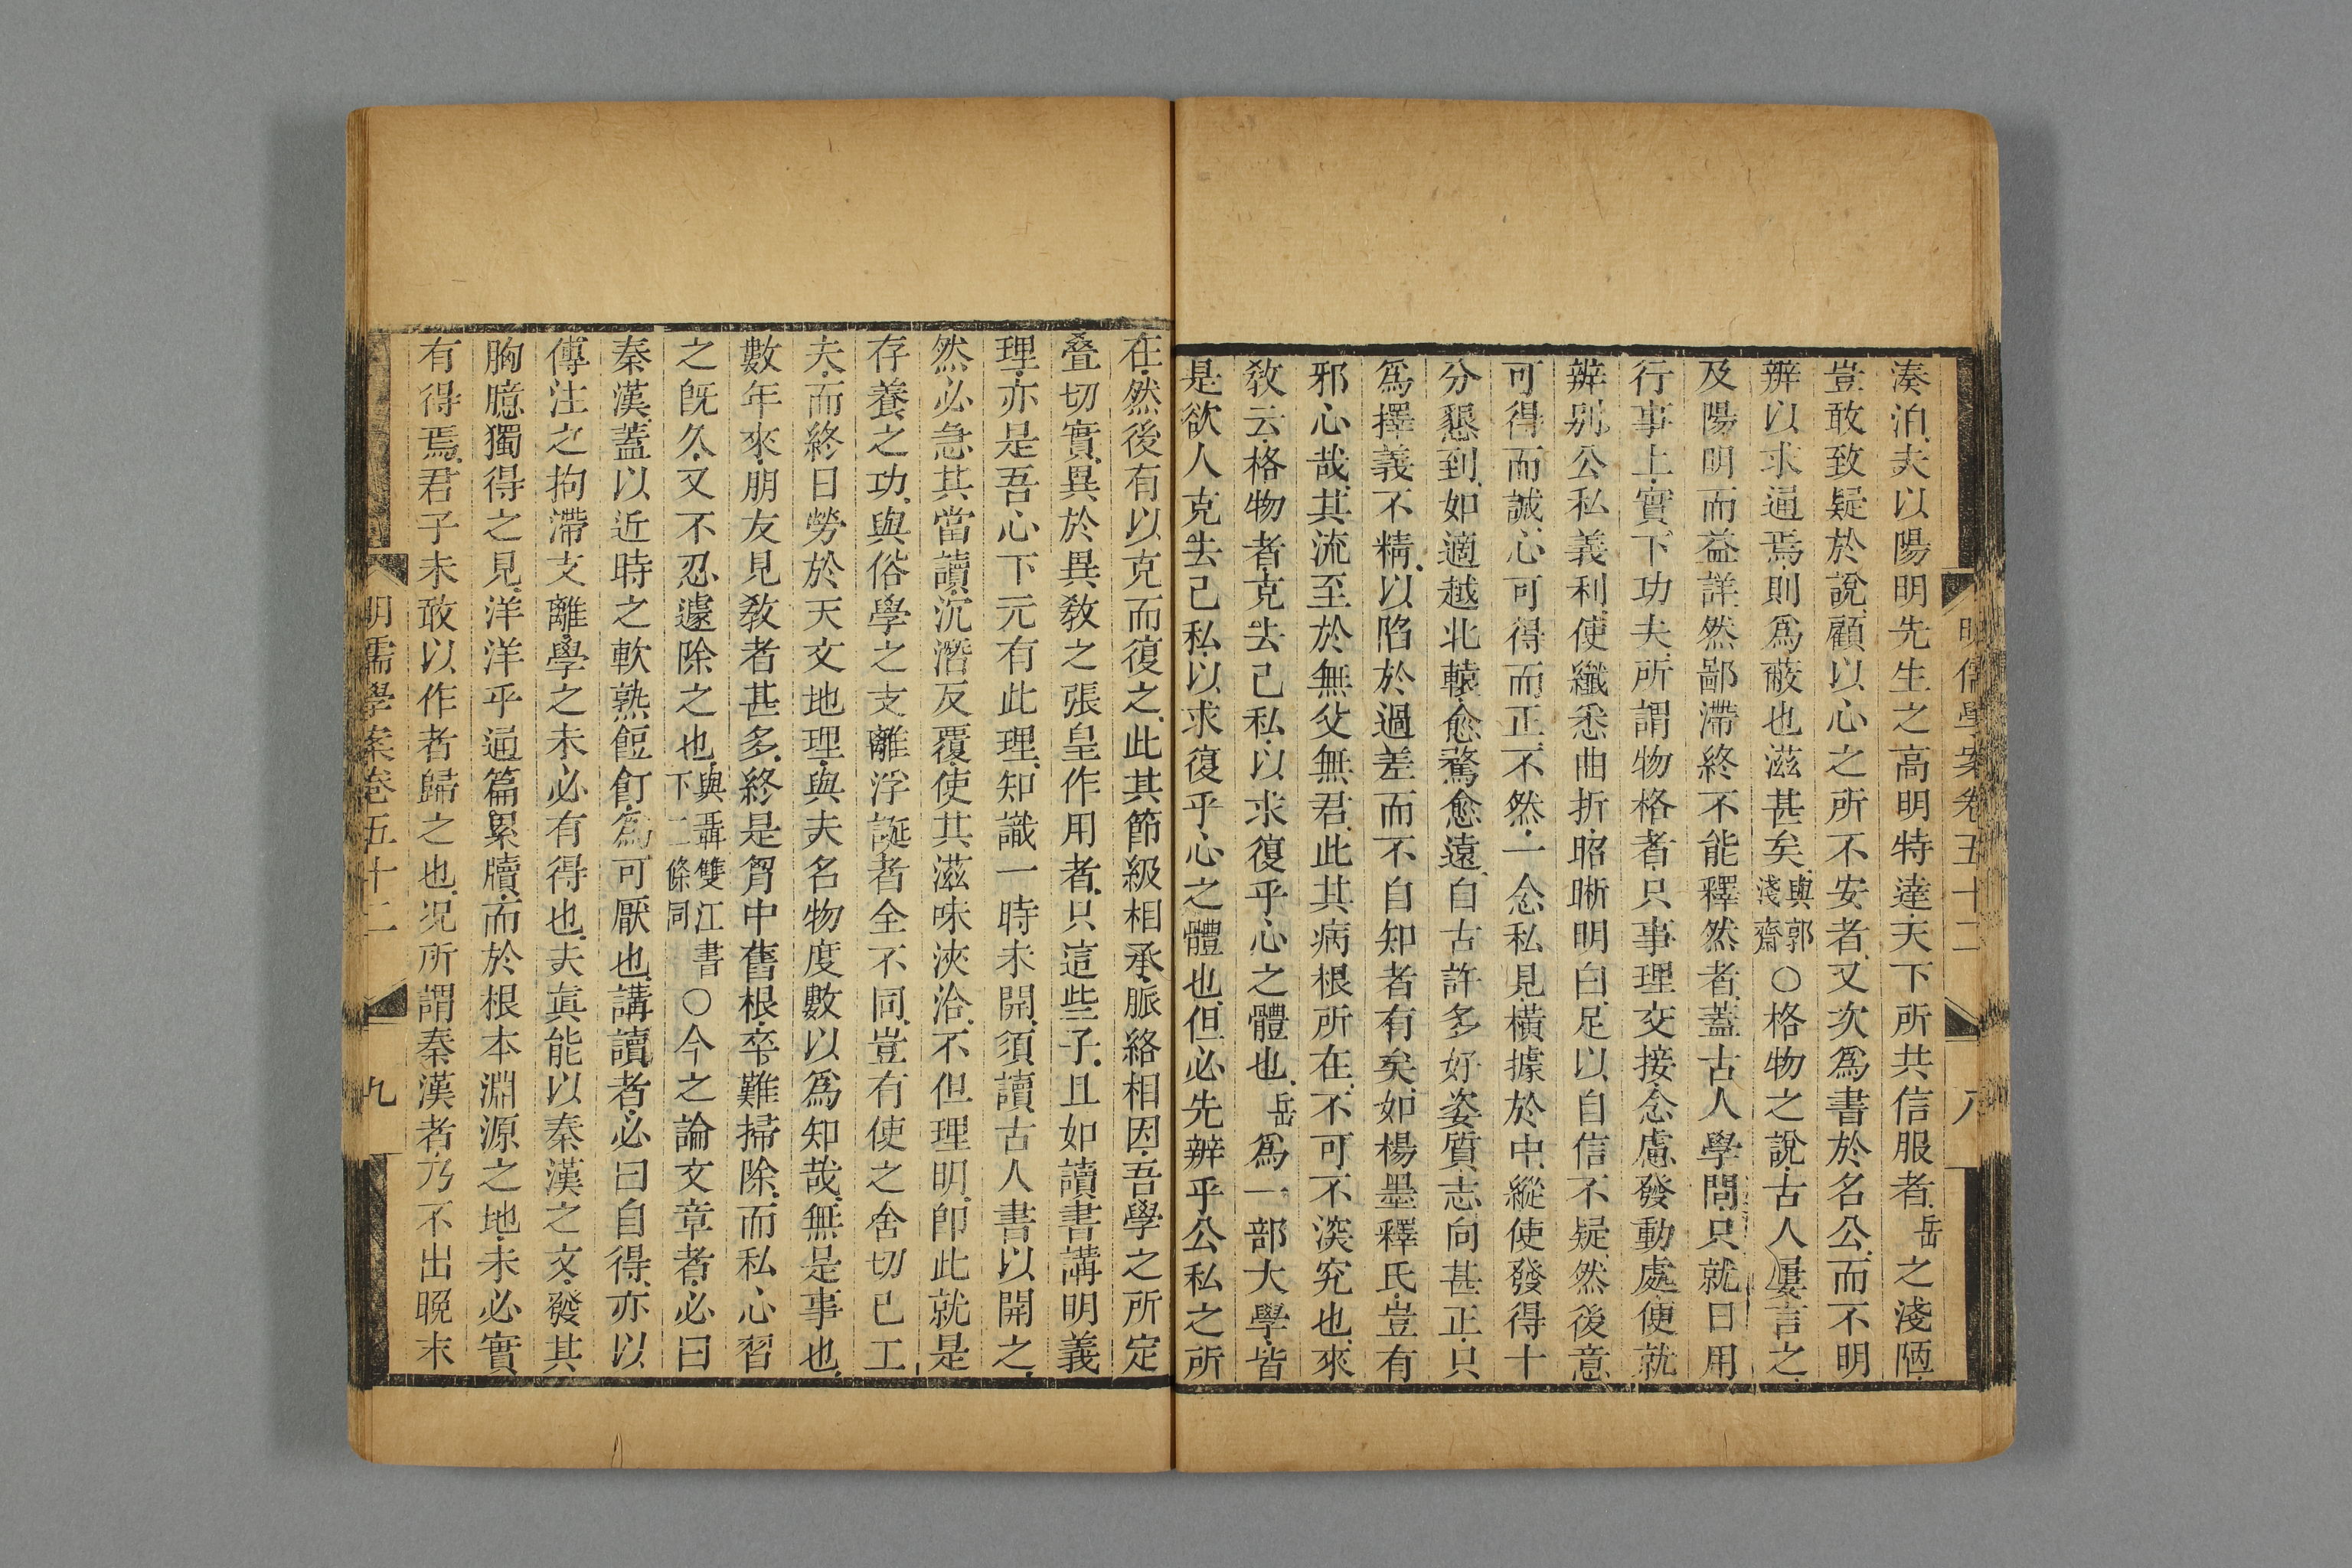 明儒學案卷五十二 八
湊泊.夫以陽明先生之高明特達.天下所共信服者.岳之淺陋.
豈敢致疑於說.顧以心之所不安者.又次爲書於名公.而不明
辨以求通焉.則爲蔽也滋甚矣.與郭淺齋○格物之說.古人屢言之.
及陽明而益詳.然鄙滯終不能釋然者.蓋古人學問.只就日用
行事上.實下功夫.所謂物格者.只事理交接.念慮發動處.便就
辨別公私義利.使纖悉曲折.昭晰明白.足以自信不疑.然後意
可得而誠.心可得而正.不然.一念私見.橫據於中.縱使發得十
分懇到.如適越北轅.愈騖愈遠.自古許多好姿質.志向甚正.只
爲擇義不精.以陷於過差.而不自知者有矣.如楊墨釋氏.豈有
邪心哉.其流至於無父無君.此其病根所在.不可不深究也.來
敎云.格物者.克去己私.以求復乎心之體也.岳爲一部大學.皆
是欲人克去己私.以求復乎心之體也.但必先辨乎公私之所
在.然後有以克而復之.此其節級相承.脈絡相因.吾學之所定
疊切實.異於異敎之張皇作用者.只這些子.且如讀書講明義
理.亦是吾心下元有此理.知識一時未開.須讀古人書以開之.
然必急其當讀.沉潛反覆.使其滋味浹洽.不但理明.卽此就是
存養之功.與俗學之支離浮誕者全不同.豈有使之舍切已工
夫.而終日勞於天文地理.與夫名物度數以爲知哉.無是事也.
數年來.朋友見敎者甚多.終是胷中舊根.卒難掃除.而私心習
之旣久.又不忍遽除之也.與聶雙江書下二條同○今之論文章者.必曰
秦漢.蓋以近時之軟熟餖飣.爲可厭也.講讀者.必曰自得.亦以
傳注之拘滯支離.學之未必有得也.夫眞能以秦漢之文.發其
胸臆獨得之見.洋洋乎通篇累牘.而於根本淵源之地.未必實
有得焉.君子未敢以作者歸之也.况所謂秦漢者.乃不出晩末
明儒學案卷五十二 九